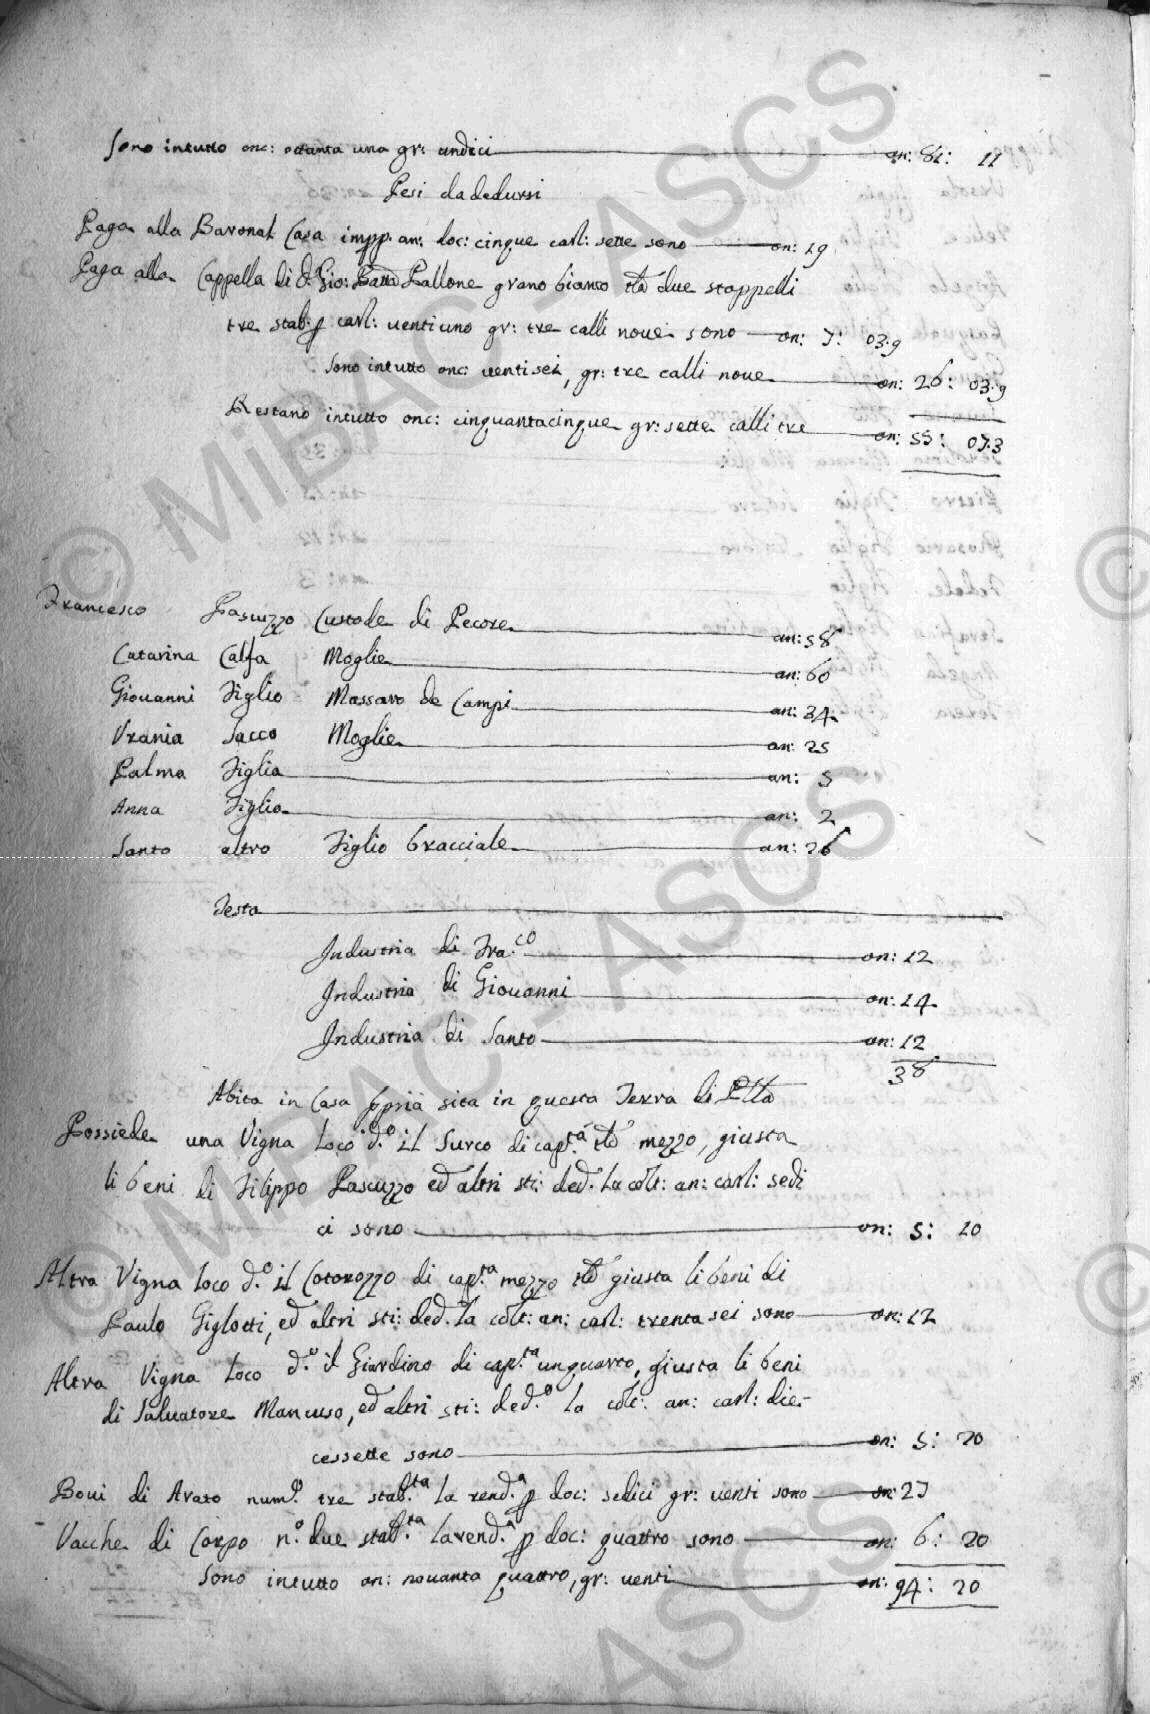 Sono intutto onc: ottanta una gr: undici on: 81: 11
Pesi da dedursi
Paga alla Baronal Casa imp̄p. an: doc: cinque carl: sette sono on: 19
Paga alla Cappella di D. Gio: Batta Pallone grano bianco tt̄ā due stoppelli
tre stab: p carl: ventiuno gr: tre calli nove sono on: 7: 03.9
Sono intutto onc: ventisei, gr: tre calli nove on: 26: 03.9
Restano intutto onc: cinquantacinque gr: sette calli tre on: 55: 07.3
Francesco Pascuzzo Custode di Pecore an: 58
Catarina Calfa Moglie an: 60
Giovanni Figlio Massaro de Campi an: 34
Urania Sacco Moglie an: 25
Palma Figlia an: 5
Anna Figlia an: 2
Santo altro Figlio bracciale an: 26
Testa
Industria di Fra.co on: 12
Industria di Giovanni on: 14
Industria di Santo on: 12
38
Abita in Casa ppria sita in questa Terra di Ptta
Possiede una Vigna loco d.o il Surco di cap.tà tt̄ā mezzo, giusta
li beni di Filippo Pascuzzo ed altri sti: ded. la colt: an: carl: sedi
ci sono on: 5: 10
Altra Vigna loco d.o il Cotorozzo di cap.ta mezzo tt̄ā giusta li beni di
Paulo Gigliotti, ed altri sti: ded. la colt: an: carl: trenta sei sono on: 12
Altra Vigna loco d.o il Giardino di cap.ta un quarto, giusta li beni
di Salvatore Mancuso, ed altri sti: ded.o la colt: an: carl: die-
cessette sono on: 5: 20
Bovi di Arato num.o tre stab.ta la rend.a p doc: sedici gr: venti sono on: 27
Vacche di Corpo n.o due stab.ta la rend.a p doc: quattro sono on: 6: 20
Sono intutto on: novanta quattro, gr: venti on: 94: 20
© MiBAC - ASCS
© MiBAC - ASCS
© ASCS